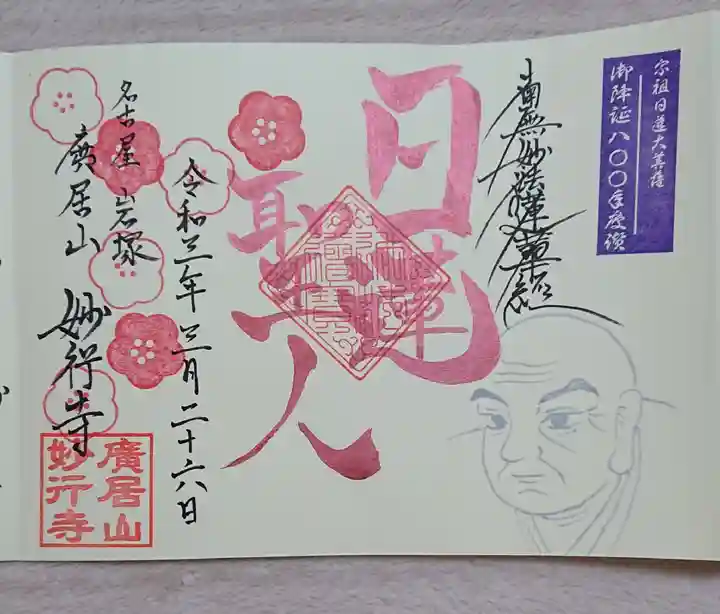 宗祖日蓮大菩薩
御降誕八〇〇年慶讃
南無妙法蓮華経
日蓮
聖人
令和三年 三月二十六日
名古屋 岩塚
廣居山 妙行寺
廣居山
妙行寺